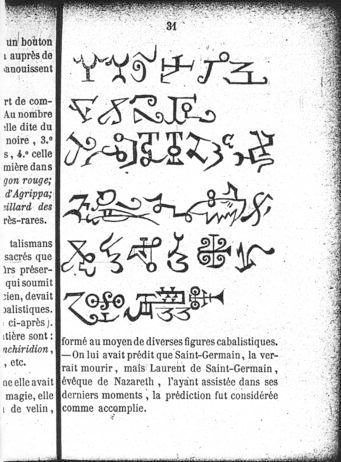 un bouton
auprès de
anouissent
rt de com-
Au nombre
elle dite du
noire, 3.e
s, 4.e celle
mière dans
gon rouge;
d'Agrippa;
illard des
rès-rares.
talismans
sacrés que
rs préser-
qui soumit
cien, devait
balistiques.
ci-après).
tière sont :
nchiridion,
, etc.
ne elle avait
magie, elle
de velin,
31
formé au moyen de diverses figures cabalistiques.
— On lui avait prédit que Saint-Germain, la ver-
rait mourir, mais Laurent de Saint-Germain,
évêque de Nazareth, l'ayant assistée dans ses
derniers moments, la prédiction fut considérée
comme accomplie.